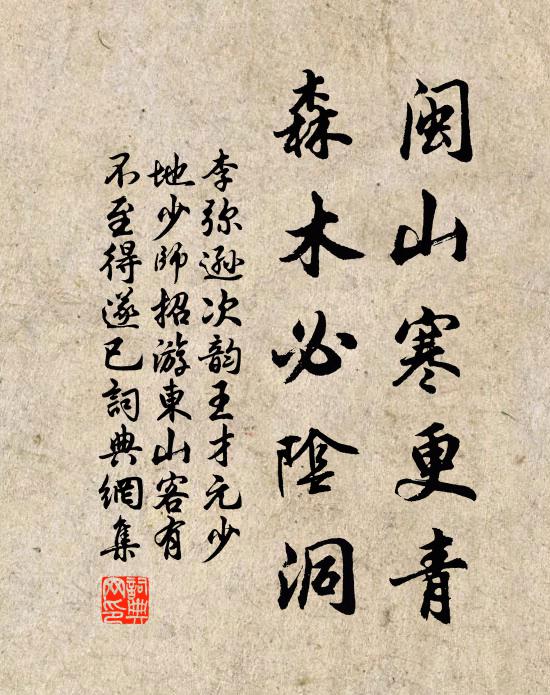 闽山寒更青
森木必陰洞
李弥逊次韵王才元少
地少师招游東山客有
不至得遂已詞典網集
詞典
网印